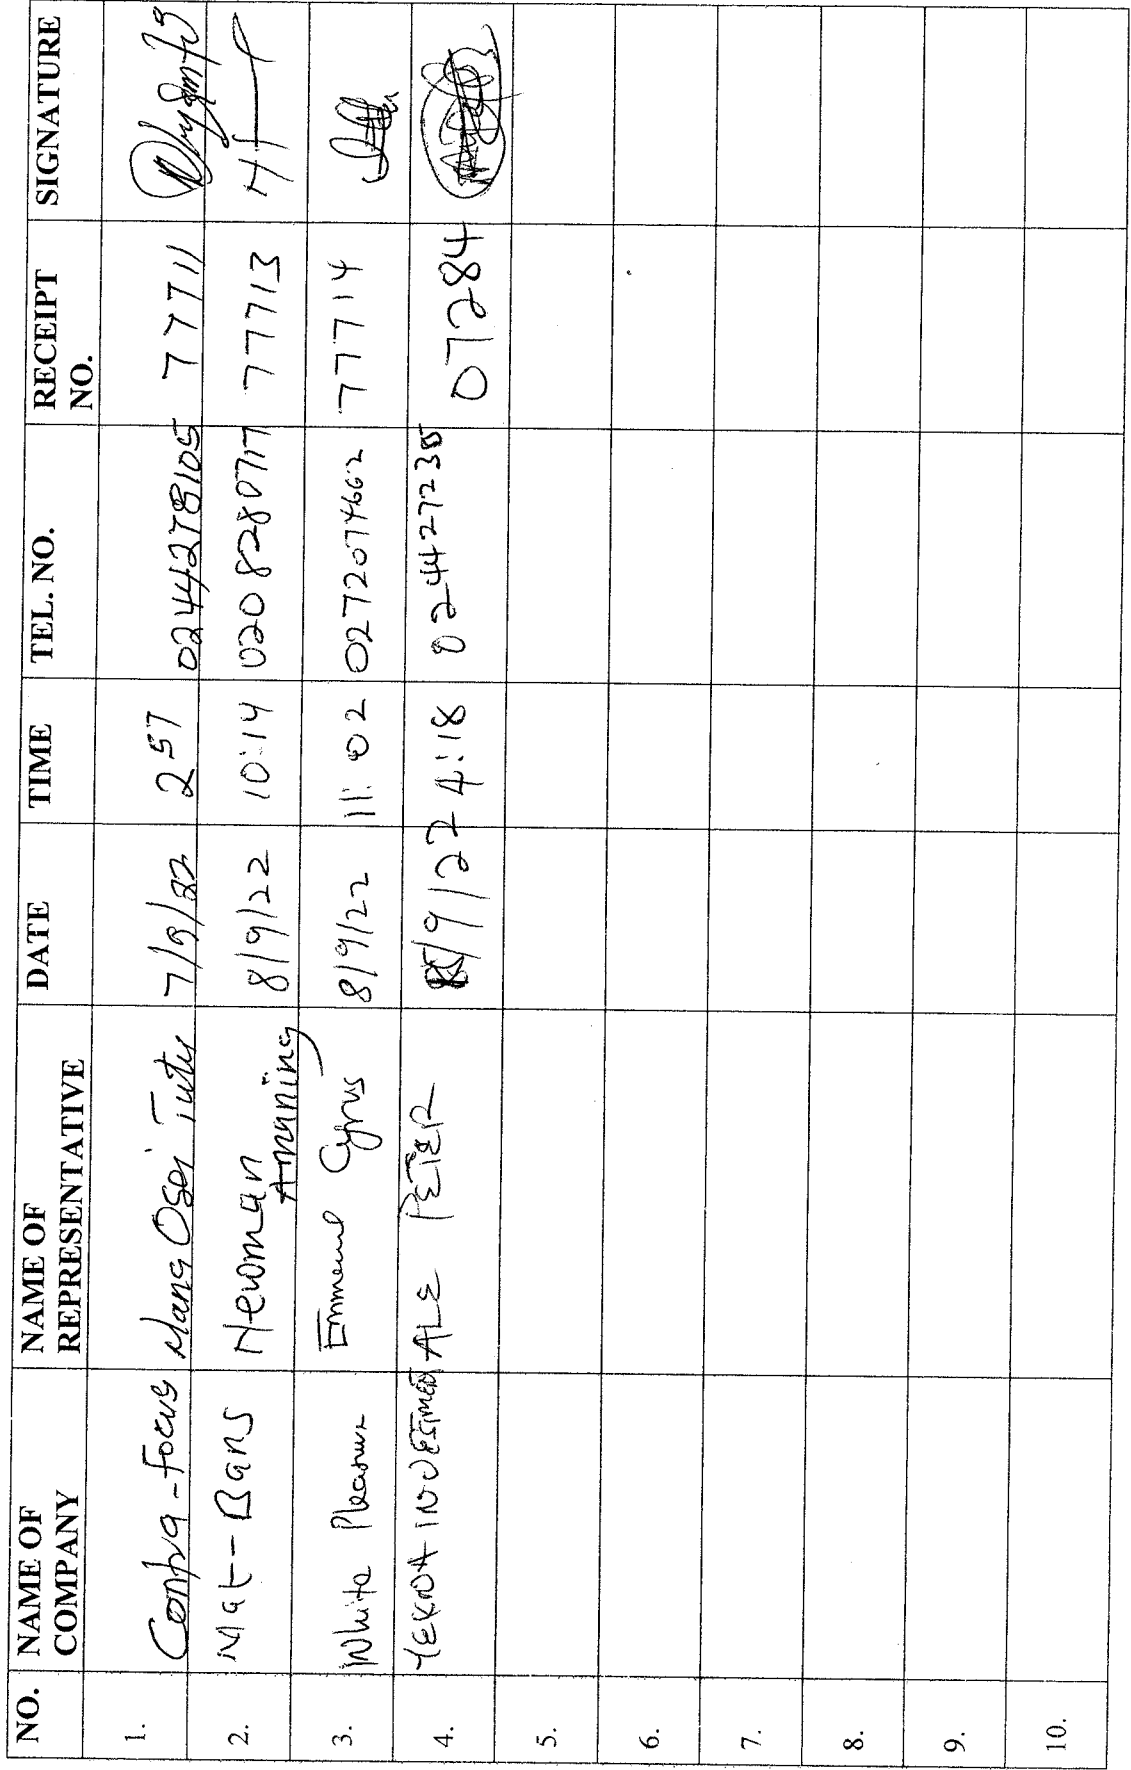 NO. NAME OF COMPANY NAME OF REPRESENTATIVE DATE TIME TEL. NO. RECEIPT NO. SIGNATURE
1. Contra-Focus Nana Osei Tutu 7/9/22 2 57 0244278105 77711
2. Mat-Bans Newman Amaning 8/9/22 10:14 0208280717 77713
3. White Pleasure Emmanuel Cyrus 8/9/22 11:02 0272074662 77714
4. YEKDA INVESTMENT ALE PETER 8/9/22 4:18 0244272385 07284
5.
6.
7.
8.
9.
10.